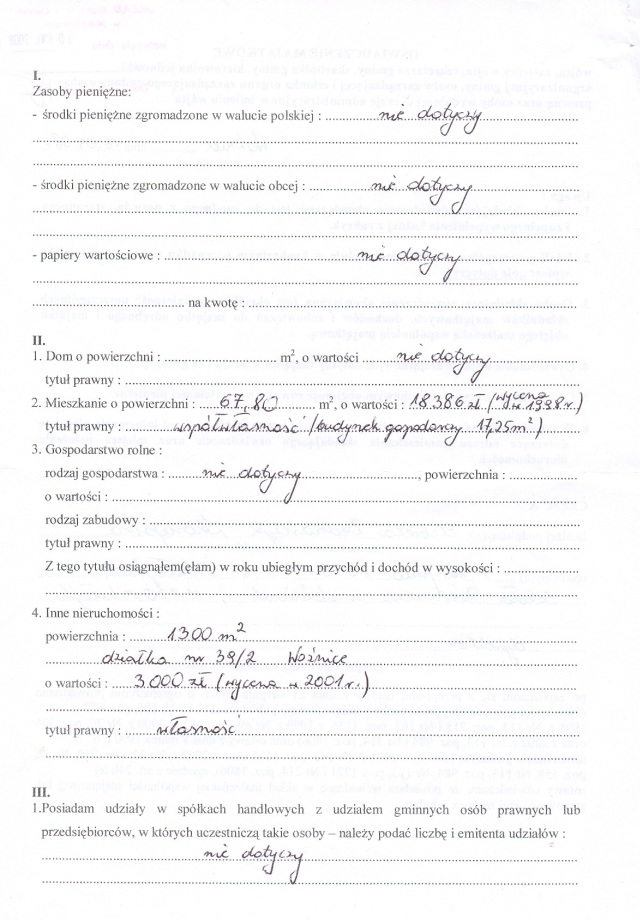 I.
Zasoby pieniężne:
- środki pieniężne zgromadzone w walucie polskiej : nie dotyczy
- środki pieniężne zgromadzone w walucie obcej : nie dotyczy
- papiery wartościowe : nie dotyczy
na kwotę :
II.
1. Dom o powierzchni : m², o wartości nie dotyczy
tytuł prawny :
2. Mieszkanie o powierzchni : 67,80 m², o wartości : 18.386 zł (wycena w 1998 r.)
tytuł prawny : współwłasność (budynek gospodarczy 17,25m²)
3. Gospodarstwo rolne :
rodzaj gospodarstwa : nie dotyczy , powierzchnia :
o wartości :
rodzaj zabudowy :
tytuł prawny :
Z tego tytułu osiągnąłem(ęłam) w roku ubiegłym przychód i dochód w wysokości :
4. Inne nieruchomości :
powierzchnia : 1300 m²
działka nr 39/2 Woźnice
o wartości : 3.000 zł (wycena w 2001 r.)
tytuł prawny : własność
III.
1.Posiadam udziały w spółkach handlowych z udziałem gminnych osób prawnych lub
przedsiębiorców, w których uczestniczą takie osoby – należy podać liczbę i emitenta udziałów :
nie dotyczy